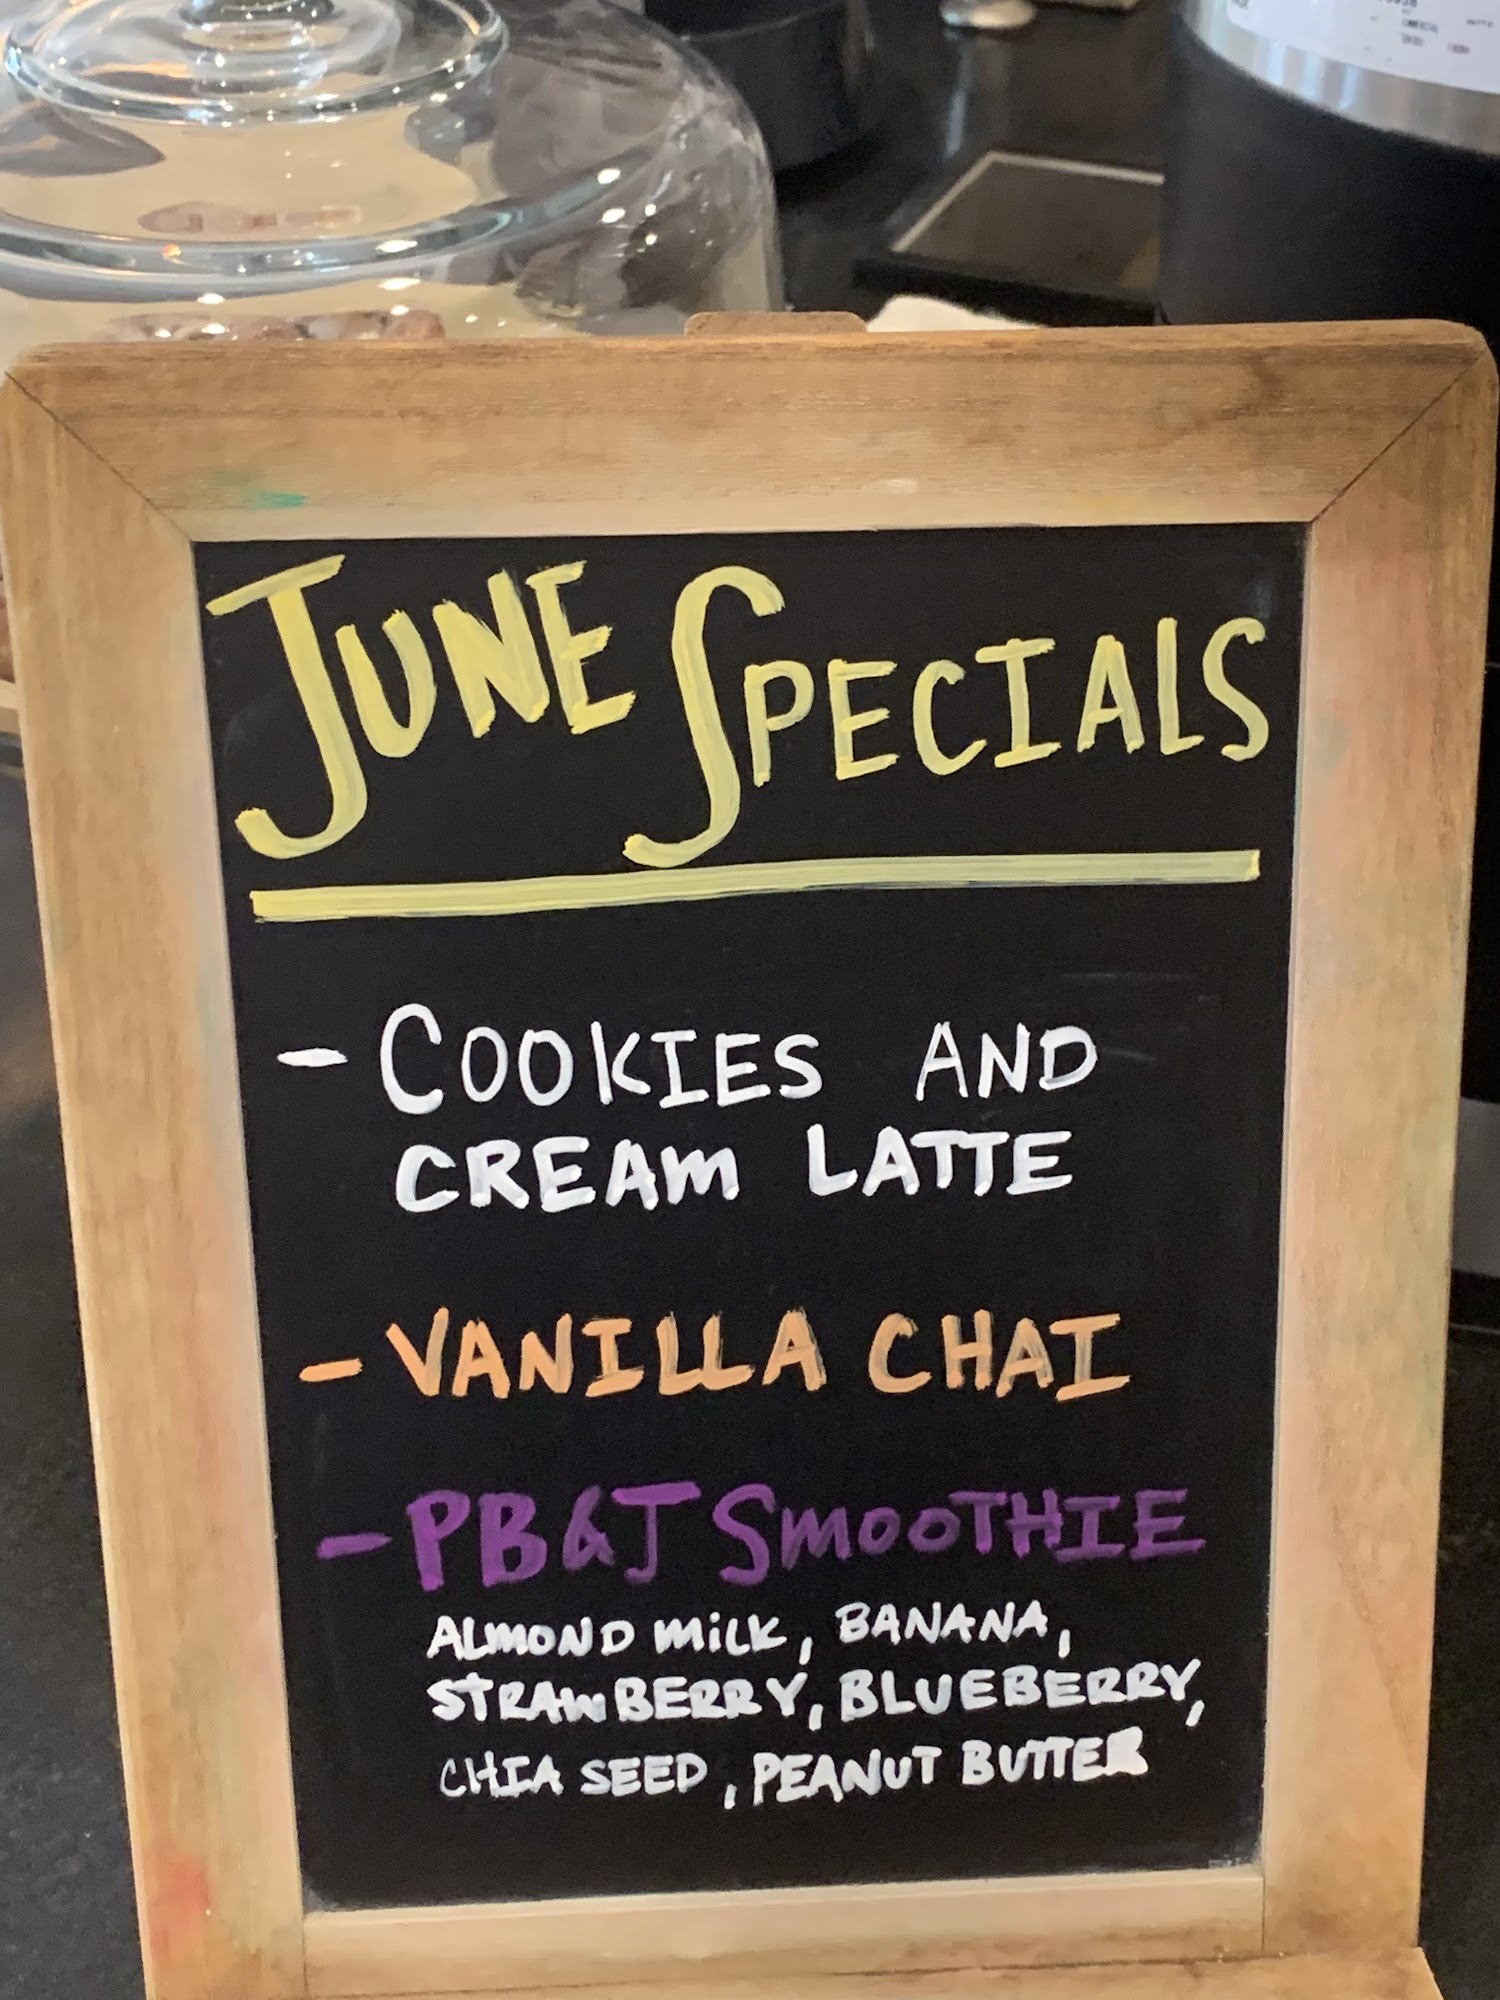 JUNE SPECIALS
- COOKIES AND
CREAM LATTE
- VANILLA CHAI
- PB&J SMOOTHIE
ALMOND MILK, BANANA,
STRAWBERRY, BLUEBERRY,
CHIA SEED, PEANUT BUTTER